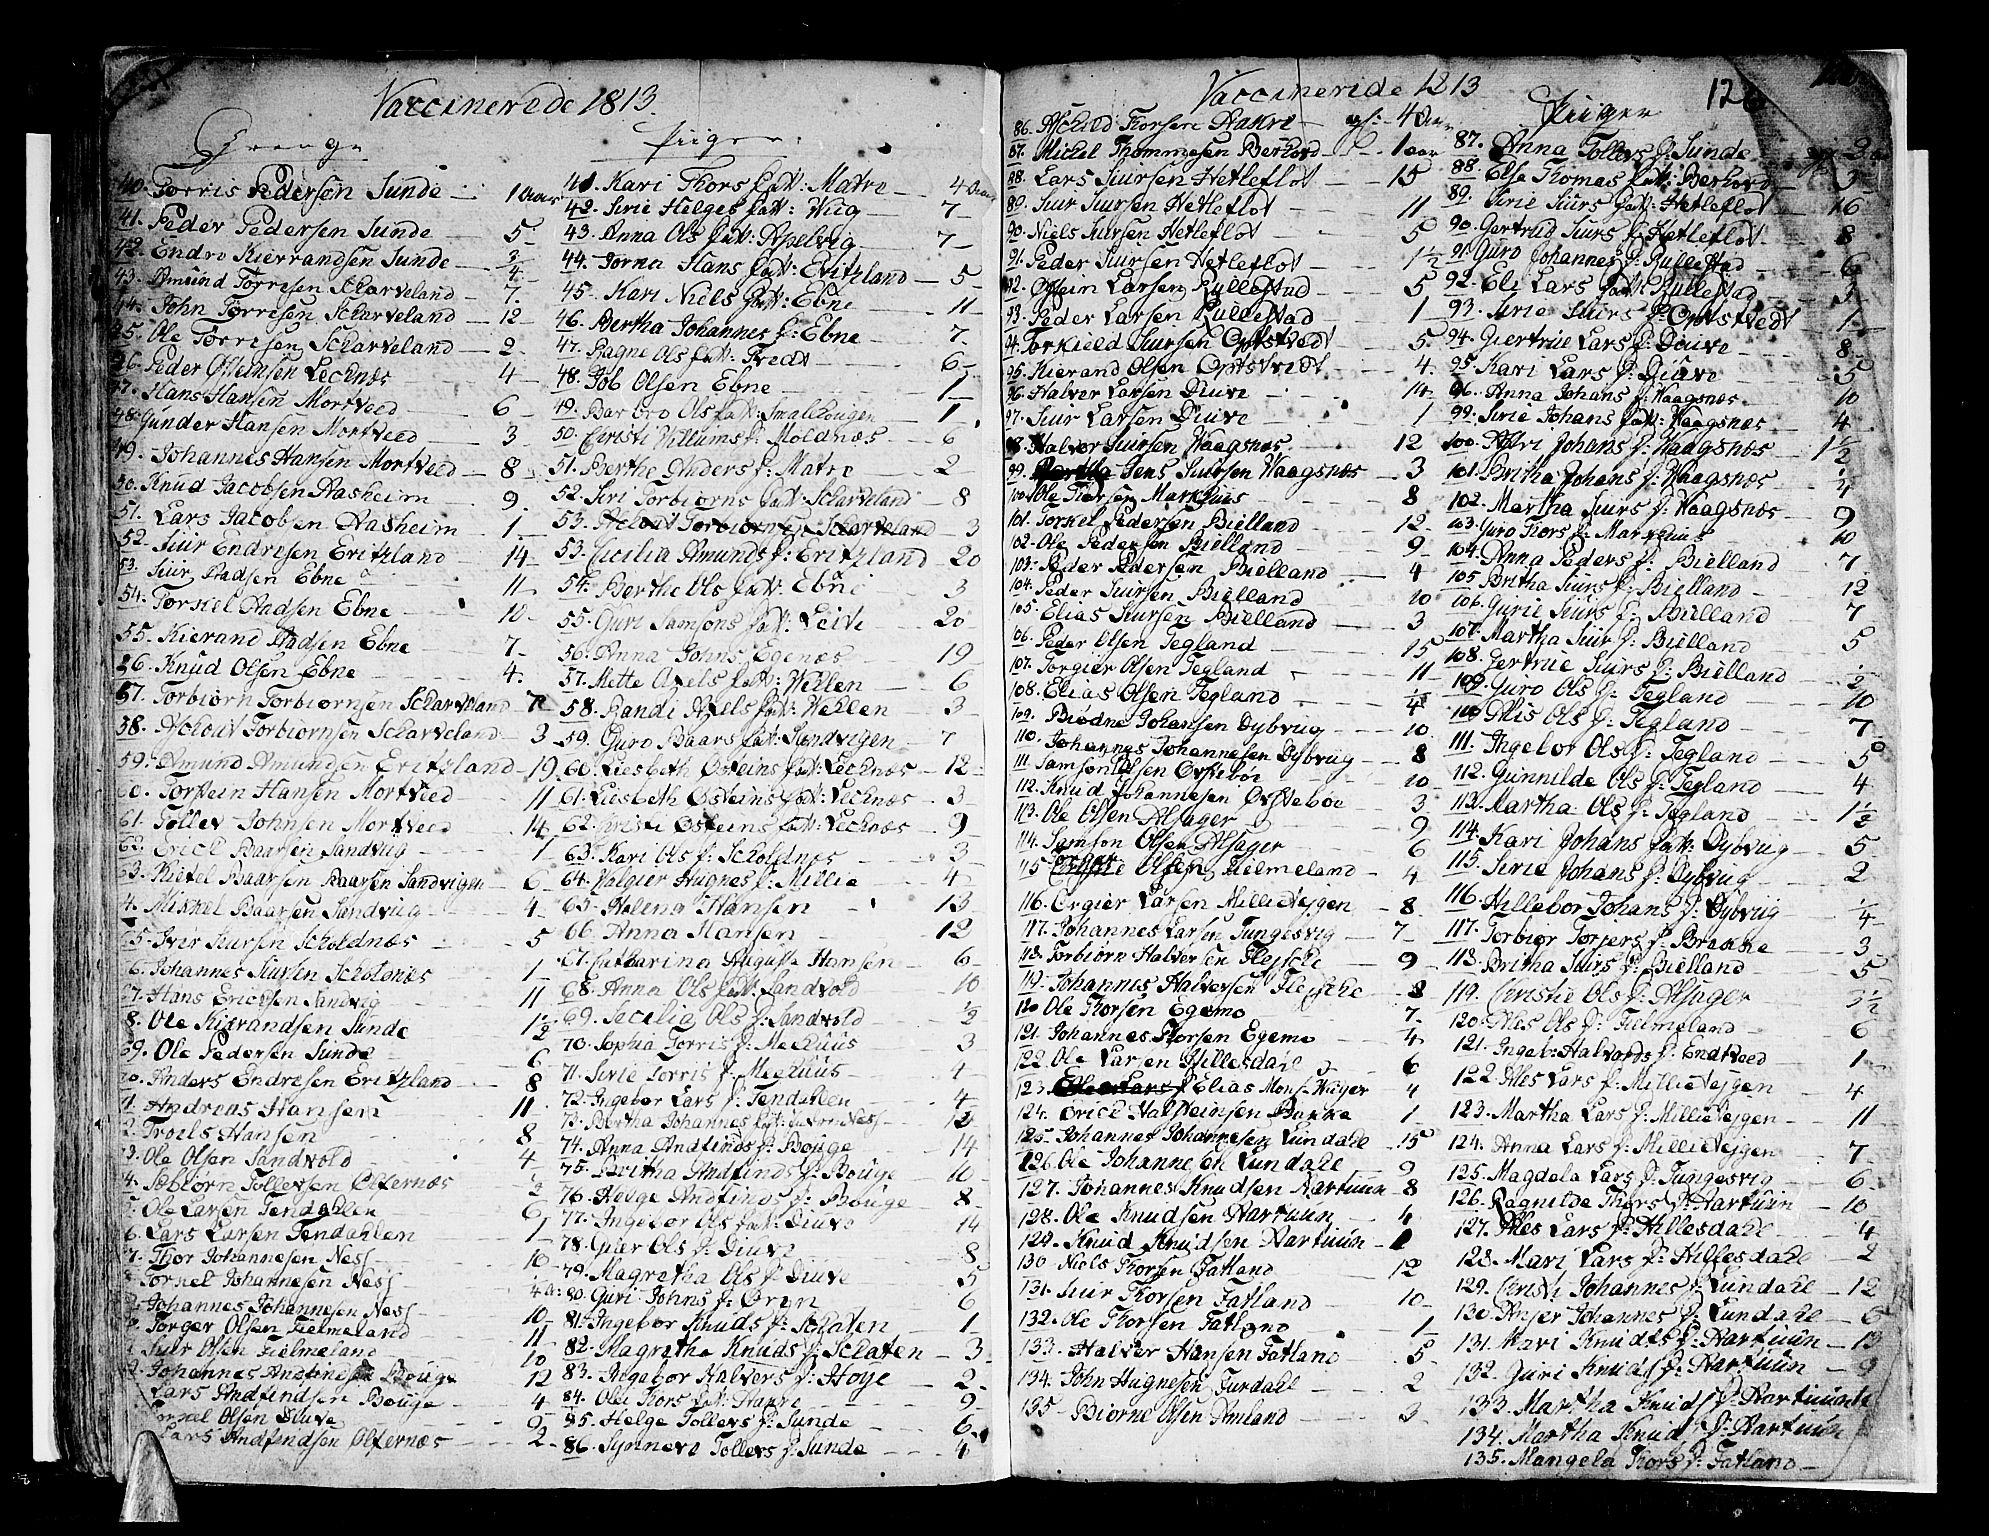 Vaccinerede 1813.
Drenge
40. Torris Pedersen Sunde 1 Aar
41. Peder Pedersen Sunde 5
42. Endre Kierrandsen Sunde 3/4
43. Amund Torresen Scharveland 7
44. John Torresen Scharveland 12
45. Ole Torresen Scharveland 2
46. Peder Østensen Lechnæs 4
47. Hans Hansen Mortveed 6
48. Gunder Hansen Mortveed 3
49. Johannes Hansen Mortveed 8
50. Knud Jacobsen Aasheim 9
51. Lars Jacobsen Aasheim 1
52. Siur Endresen Eritzland 14
53. Siur Aadsen Ebne 11
54. Torkel Aadsen Ebne 10
55. Kierand Aadsen Ebne 7
56. Knud Olsen Ebne 4
57. Torbiørn Torbiørnsen Scharveland 7
58. Achout Torbiørnsen Scharveland 3
59. Amund Amundsen Eritzland 19
60. Torstein Hansen Mortveed 11
61. Tollev Johnsen Mortveed 14
62. Erich Baarsen Sandvig 1
63. Michel Baarsen Baarsen Sandvigen 6
4. Mikkel Baarsen Sandvug 4
65. Iver Siursen Scholdnæs 5
6. Johannes Siursen Scholdnæs 1
67. Hans Ericksen Sandvig 11
8. Ole Kierandsen Sunde 1 1/2
69. Ole Pedersen Sunde 6
70. Anders Endresen Eritzland 8
71. Andreas Hansen 11
2. Troels Hansen 8
73. Ole Olsen Sandvold 4
4. Asbiørn Tollevsen Ølfernæs 1/2
5. Ole Larsen Tendahlen 6
6. Lars Larsen Tendahlen 1
7. Thor Johannesen Ness 10
8. Torkel Johannesen Ness 4
Johannes Johannesen Ness 10
Torger Olsen Fielmeland 11
Siur Olsen Fielmeland 10
2. Johannes Andfindsen Bouge 12
Lars Andfindsen Bouge 4
Torkel Olsen Diuve 9
Lars Andfindsen Ølfernæs 2
Piiger
41. Kari Thors Datt: Matre 4 Aar
42. Sirie Helges Datt: Viig 7
43. Anna Ols Datt: Apelvig 7
44. Torna Hans Datt: Eritzland 5
45. Kari Niels Datt: Ebne 11
46. Bertha Johannes D: Ebne 7
47. Ragne Ols Datt: Tvedt 6
48. Job Olsen Ebne 1
49. Barbro Ols Datt: Smalhougen 1
50. Christi Villums D: Moldnæs 6
51. Berthe Anders D: Matre 2
52. Siri Torbiørns Datt: Scharveland 8
53. Achout Torbiørnsen Scharveland 3
53. Cicilia Amunds D: Eritzland 20
54. Berthe Ols Datt: Ebne 3
55. Guri Samsons Datt: Leite 20
56. Anna Johns Egenæs 19
57. Mette Axels Datt: Vehlen 6
58. Randi Axels Datt: Vehlen 3
59. Guro Baars Datt: Sandvigen 7
60. Liesbeth Østeins Datt: Lechnæs 12
61. Liesbeth Østeins Datt: Lechnæs 3
62. Christi Østeins Datt: Lechnæs 9
63. Kari Ols D: Scholdnæs 3
64. Valgier Hugnes D: Millie 4
65. Helena Hansen 13
66. Anna Hansen 12
67. Catharina Augusta Hansen 6
68. Anna Ols Datt: Sandvold 10
69. Secilia Ols D: Sandvold 1/2
70. Sophia Torris D: Meehuus 3
71. Sirie Torris D: Meehuus 4
72. Ingebor Lars D: Tendahlen 4
73. Bertha Johannes Datt: Ness 12
74. Anna Andfinds D: Bouge 14
75. Britha Andfinds D: Bouge 10
76. Houge Andfinds D: Bouge 8
77. Ingebor Ols Datt: Diuve 14
78. Gier Ols D: Diuve 8
79. Magretha Ols D: Diuve 5
80. Guri Johns D: Øren 6
81. Ingebor Knuds D: Schaten 1
82. Magretha Knuds D: Schaten 3
83. Ingebor Halvers D: Høye 2
84. Olei Thors Datt: Aakre 9
85. Helge Tollevs D: Sunde 6
86. Synneve Tollevs D: Sunde 4
Vaccineride 1813
126
86. Aschild Thorsen Aakre gl: 4 Aar
87. Mickel Thommesen Berhovd 1 Aar
88. Lars Siursen Hetleflot 15
89. Siur Siursen Hetleflot 11
90. Niels Siursen Hetleflot 5
91. Peder Siursen Hetleflot 1 1/2
92. Østein Larsen Rullestad 5
93. Peder Larsen Rullestad 1
94. Torkield Siursen Optstvedt 5
95. Kierand Olsen Optstvedt 4
96. Halver Larsen Diuve 14
97. Siur Larsen Diuve 1
98. Halver Siursen Vaagsnæs 12
99. Jens Siursen Vaagsnæs 3
100. Ole Thorsen Markhuus 8
101. Torkel Pedersen Bielland 12
102. Ole Pedersen Bielland 9
103. Peder Pedersen Bielland 4
104. Peder Siursen Bielland 10
105. Elias Siursen Bielland 3
106. Peder Olsen Tegland 15
107. Torgier Olsen Tegland 11
108. Elias Olsen Tegland 1/4
109. Biødne Johansen Dybvug 10
110. Johannes Johannesen Dybvug 8
111. Samson Olsen Øvstebøe 10
112. Knud Johannesen Øvstebøe 3
113. Ole Olsen Alsager 9
114. Samson Olsen Alsager 6
115 Olsen Fielmeland 4
116. Ørgier Larsen MillieVejgen 8
117. Johannes Larsen Tungesvig 7
118. Torbiørn Halversen Flejsche 9
119. Johannes Halversen Flejsche 8
120 Ole Thorsen Egemo 7
121. Johannes Thorsen Egemo 4
122. Ole Larsen Hillesdahl 6
123. Elias Monsen Vuger 4
124. Erich Halsteinsen Bakke 1
125. Johannes Johannesen Lundahl 15
126. Ole Johannesen Lundahl 9
127. Johannes Knudsen Aartuun 8
128. Ole Knudsen Aartuun 4
129. Knud Knudsen Aartuun 1
130 Niels Thorsen Fatland 12
131. Siur Thorsen Fatland 10
132. Ole Thorsen Fatland 1
133. Halver Hansen Fatland 5
134. John Hugnesen Furdahl 2
135 Biorne Olsen Amland 3
Piiger
87. Anna Tollevs D: Sunde 2
88. Else Thomas Datt: Berhovd 3
89. Sirie Siurs Datt: Hetleflot 16
90. Gertrud Siurs D: Hetleflot 8
91. Guro Johannes D: Rullestad 6
92. Eli Lars Datt: Rullestad 3
93. Sirie Siurs D: Optstvedt 1
94. Giertrue Lars D: Diuve 8
95. Kari Lars D: Diuve 5
96. Anna Johans D: Vaagsnæs 10
99. Sirie Johans Datt: Vaagsnæs 4
100. Kari Johans D: Vaagsnæs 1 1/2
101. Britha Johans D: Vaagsnæs 1/4
102. Martha Siurs D: Vaagsnæs 9
103. Guro Thors D: Markhuus 10
104. Anna Peders D: Bielland 7
105 Britha Siurs D: Bielland 12
106. Gurie Siurs D: Bielland 7
107. Martha Siur D: Bielland 5
108. Gertrue Siurs D: Bielland 1/2
109. Guro Ols D: Tegland 10
110. Ales Ols D: Tegland 7
111. Ingebor Ols D: Tegland 5
112. Gunnilde Ols D: Tegland 4
113. Martha Ols D: Tegland 1 1/2
114. Kari Johans Datt: Dybvug 5
115. Sirie Johans D: Dybvug 2
116. Hillebor Johans D: Dybvug 1/4
117. Torbiør Torjers D: Brekke 3
118. Britha Siurs D: Bielland 5
119. Christie Ols D: Alsager 3 1/2
120. Ales Ols D: Fielmeland 6
121. Ingeb: Halvords D: Endtveed 1
122. Ales Lars D: MillieVejgen 4
123. Martha Lars D: MillieVejgen 11
124. Anna Lars D: MillieVejgen 7
125. Magdela Lars D: Tungesvig 6
126. Ragnilde Thors D: Aartuun 10
127. Ales Lars D: Hillesdahl 4
128. Mari Lars D: Hillesdahl 2
129. Christi Johannes D: Lundahl 12
130. Anjer Johannes D: Lundahl 6
131. Kari Knuds D: Aartuun 13
132. Guri Knuds D: Aartuun 9
133. Martha Knuds D: Aartuun
134. Martha Knud D: Aartuun
135. Mangela Thors D: Fatland